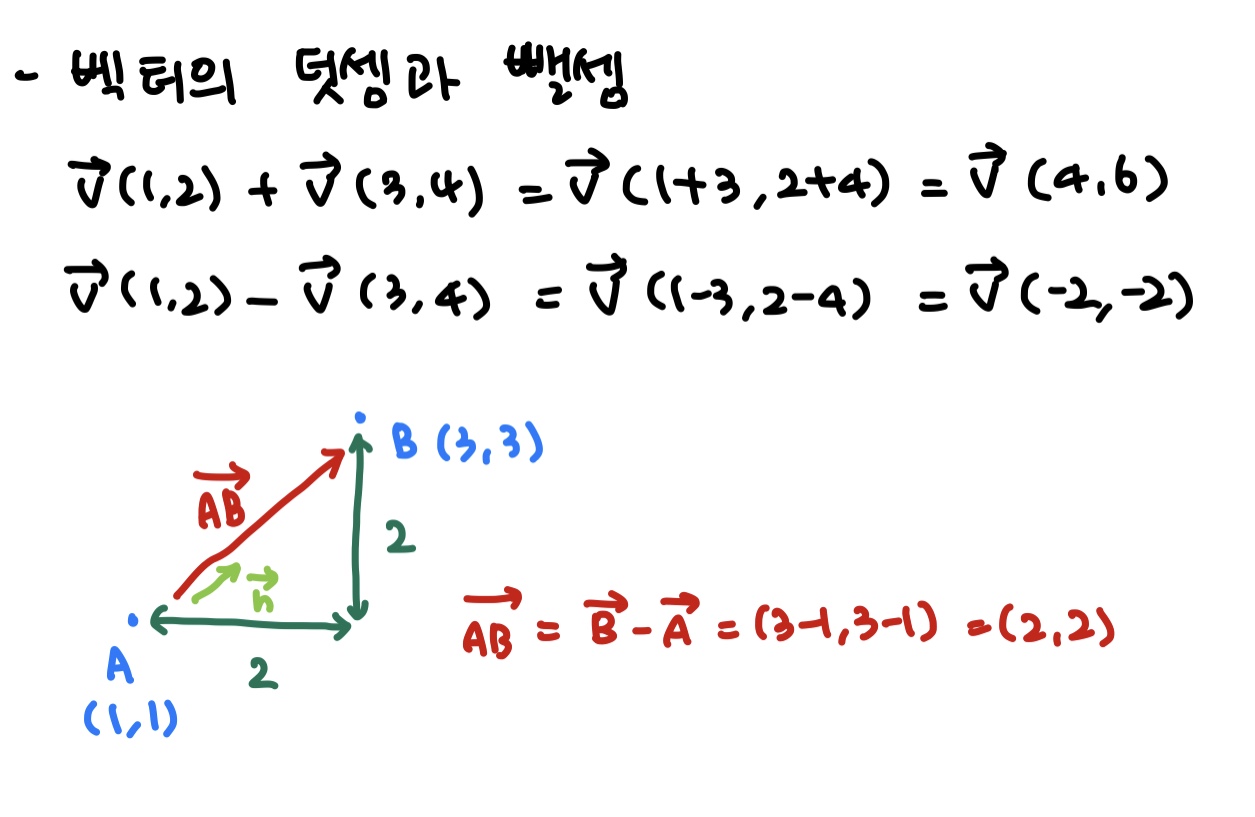 - 벡터의 덧셈과 뺄셈
v⃗(1,2) + v⃗(3,4) = v⃗(1+3,2+4) = v⃗(4,6)
v⃗(1,2) - v⃗(3,4) = v⃗(1-3,2-4) = v⃗(-2,-2)
B (3,3)
AB⃗
2
n⃗
AB⃗ = B⃗ - A⃗ = (3-1,3-1) = (2,2)
A
2
(1,1)